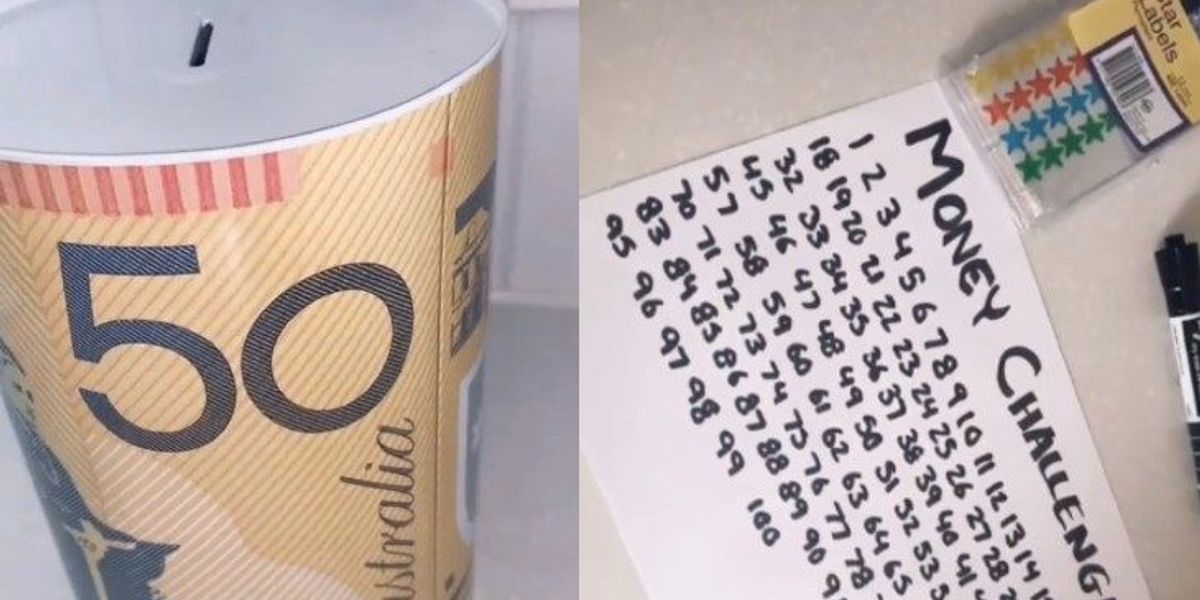 50
ustralia
Star
Labels
MONEY CHALLENG
1 2 3 4 5 6 7 8 9 10 11 12 13 14
18 19 20 21 22 23 24 25 26 27 28
32 33 34 35 36 37 38 39 40 41
45 46 47 48 49 50 51 52 53
57 58 59 60 61 62 63 64 65
70 71 72 73 74 75 76 77 78
83 84 85 86 87 88 89 90
95 96 97 98 99 100